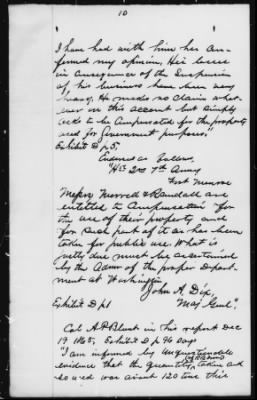 10
I have had with him has con-
firmed my opinion. His losses
in consequence of the Suspension
of his business have been very
heavy. He made no claim what-
ever in this account but simply
asks to be compensated for the property
used for Government purposes."
Exhibit D p 5.
Endorsed as follows,
"Hd 2nd 7th Army
Fort Monroe
Messrs Morrod & Randall are
entitled to Compensation "for
the use of their property and
for such part of it as has been
taken for public use. What is
justly due must be ascertained
by the Admr of the proper Depart-
ment at Washington
John A. Dix,
Exhibit D p1 Maj Genl."
Col A P Blunt in his report Dec
19 1865, Exhibit D p 96 says
"I am informed by Unquestionable
evidence that the quantity taken and
so used was about 120 tons this